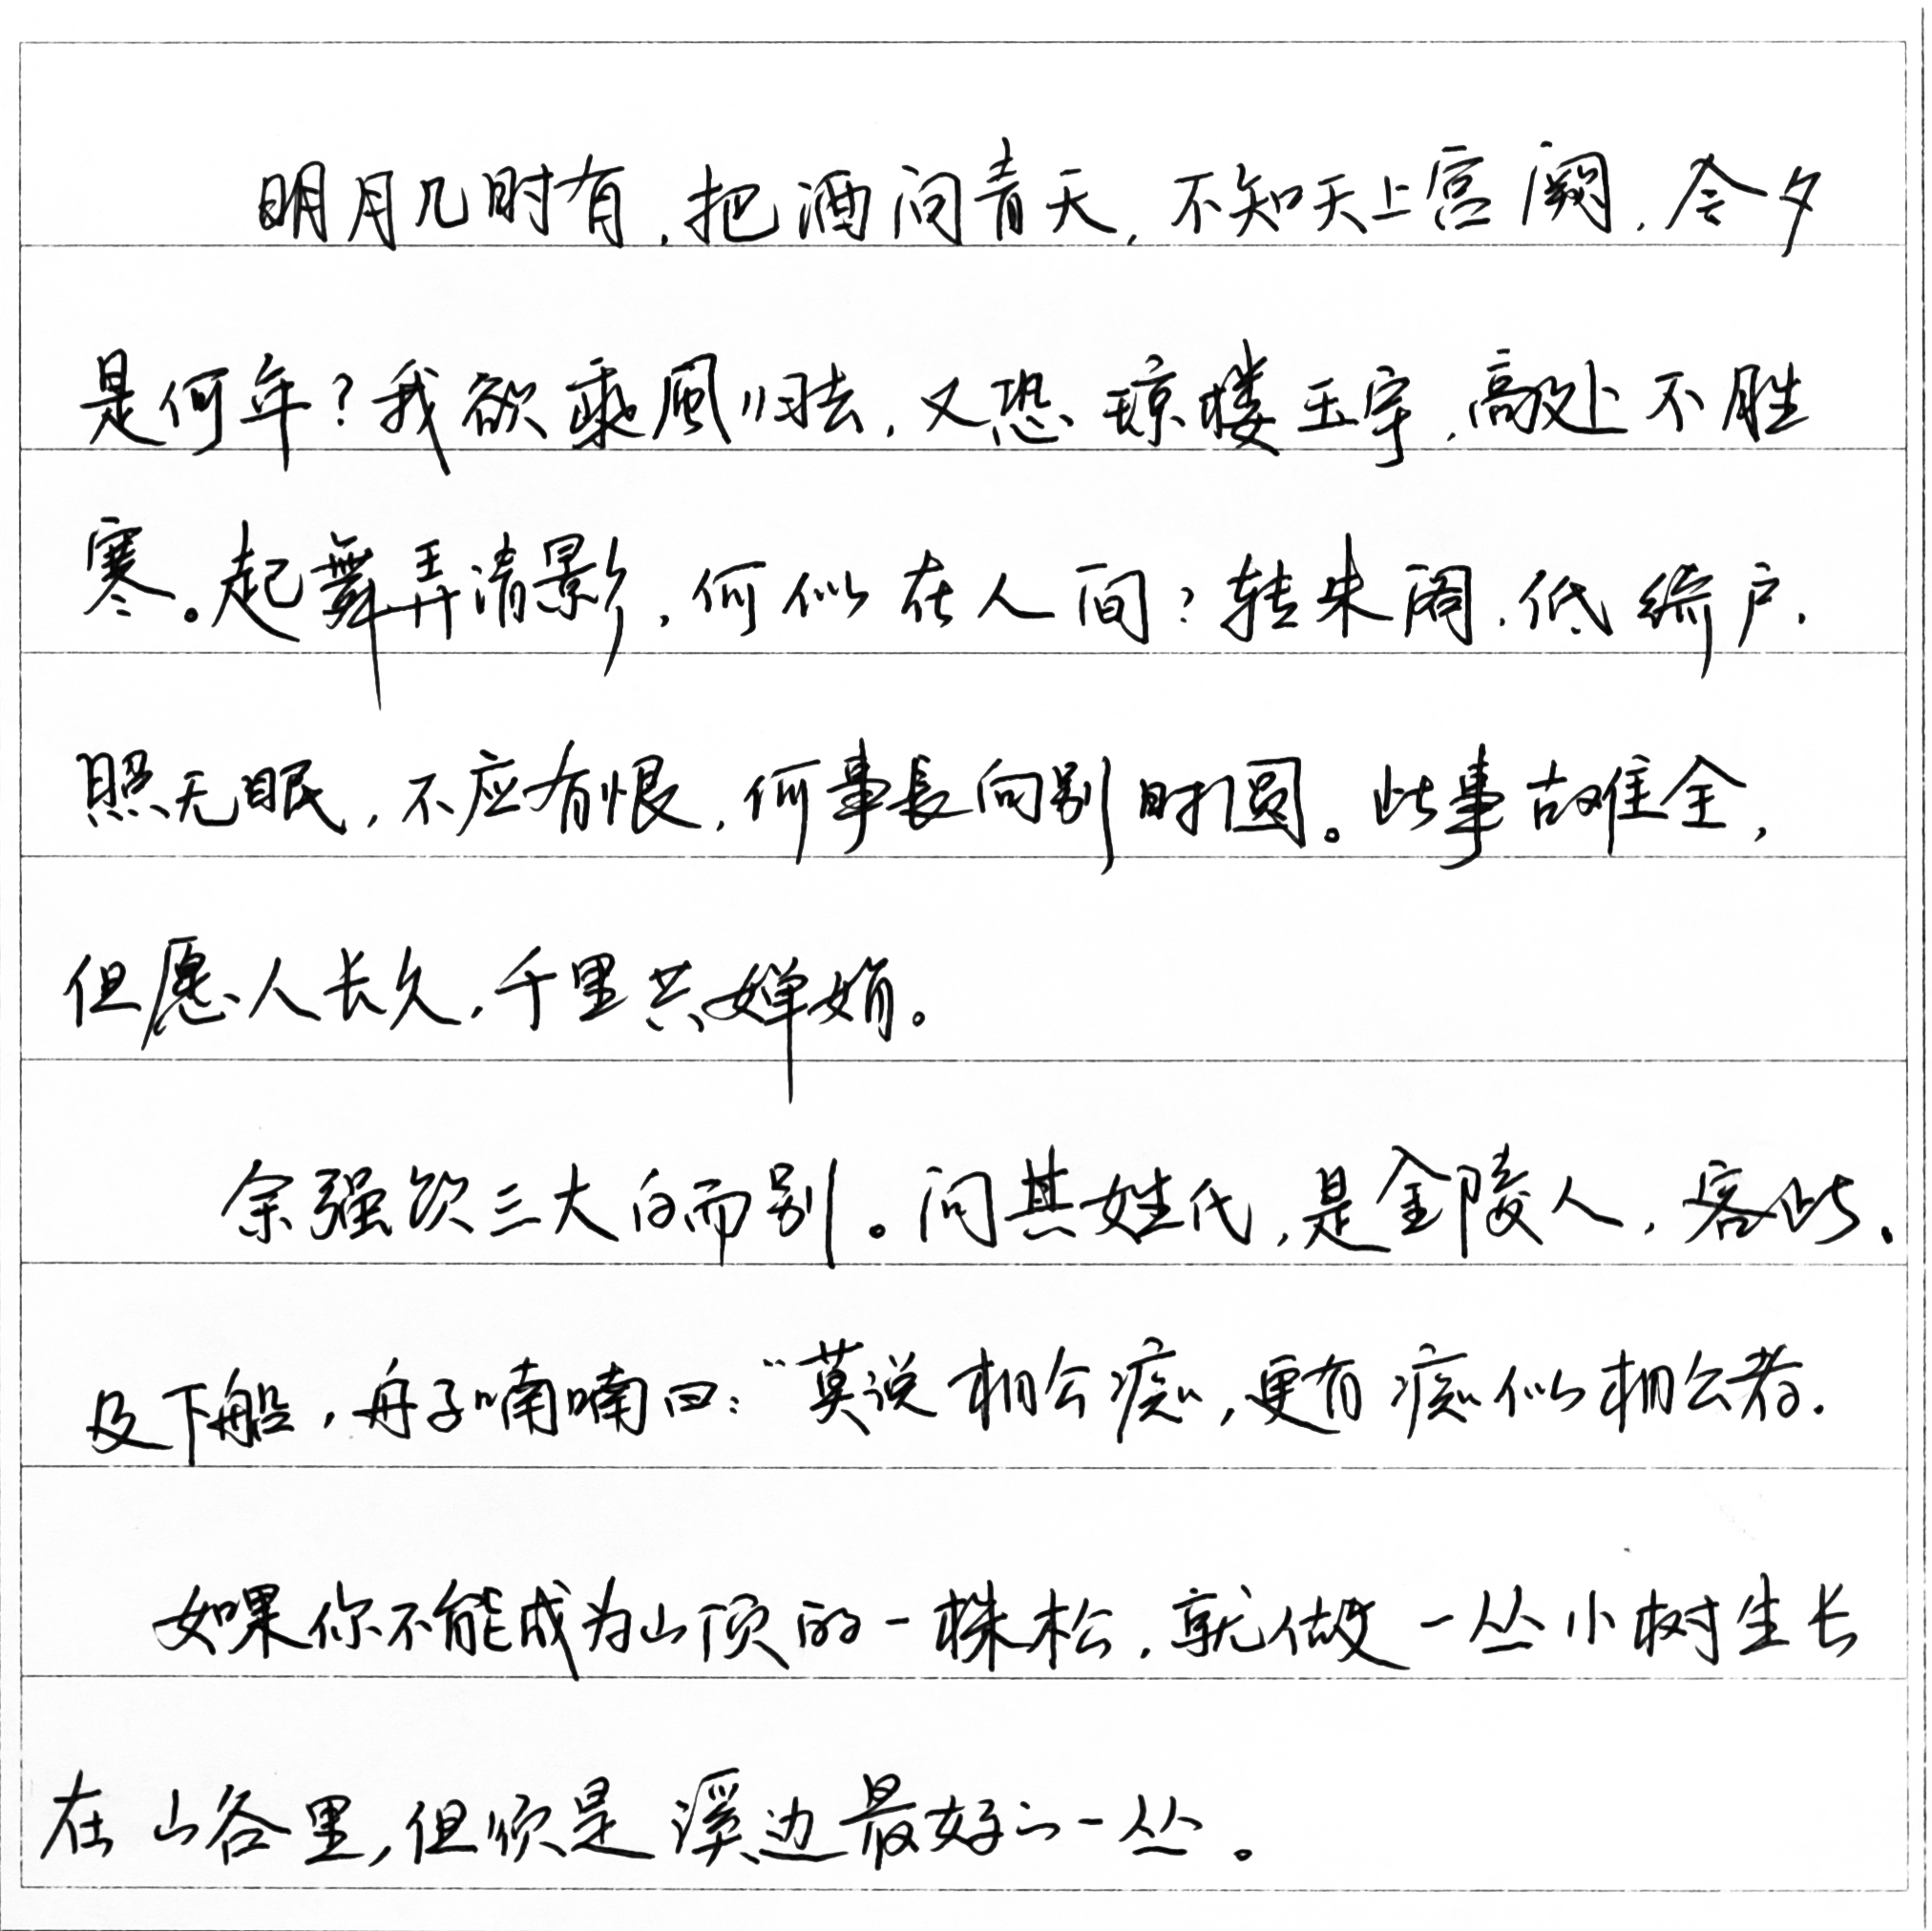 明月几时有，把酒问青天，不知天上宫阙，今夕
是何年？我欲乘風归去，又恐琼楼玉宇，高处不胜
寒。起舞弄清影，何似在人间？转朱阁，低绮户，
照无眠，不应有恨，何事長向别时圆。此事古难全，
但愿人长久，千里共婵娟。
余强饮三大白而别。问其姓氏，是金陵人，客此、
及下船，舟子喃喃曰：“莫说相公痴，更有痴似相公者.
如果你不能成为山顶的一株松，就做一丛小树生长
在山谷里，但须是溪边最好的一丛。